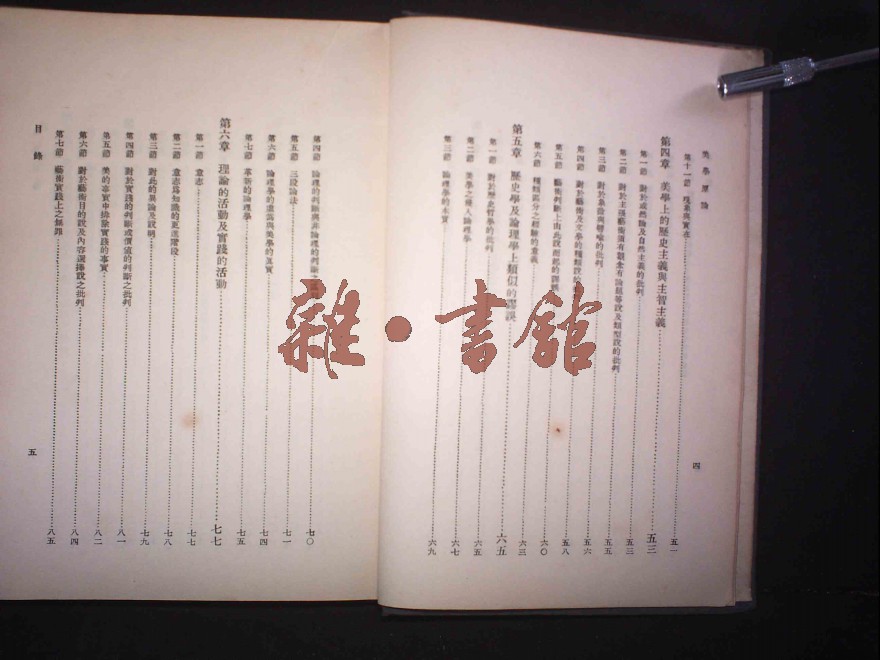 美學原論
第十一節 現象與實在 五一
第四章 美學上的歷史主義與主智主義 五三
第一節 對於或然論及自然主義的批判 五三
第二節 對於主張藝術須有觀念有論題等說及類型說的批判 五五
第三節 對於象徵與譬喻的批判 五六
第四節 對於藝術及文學的種類說的 五八
第五節 藝術判斷上由此說而起的 六〇
第六節 種類區分之經驗的意義 六三
第五章 歷史學及論理學上類似的謬誤 六五
第一節 對於歷史哲學的批判 六五
第二節 美學之侵入論理學 六七
第三節 論理學的本質 六九
四
第四節 論理的判斷與非論理的判斷之 七〇
第五節 三段論法 七一
第六節 論理學的虛偽與美學的真實 七四
第七節 革新的論理學 七五
第六章 理論的活動及實踐的活動 七七
第一節 意志 七七
第二節 意志為知識的更進階段 七八
第三節 對此的異論及說明 七九
第四節 對於實踐的判斷或價值的判斷之批判 八一
第五節 美的事實中排除實踐的事實 八二
第六節 對於藝術目的說及內容選擇說之批判 八四
第七節 藝術實踐上之無罪 八五
目錄
五
雜·書館